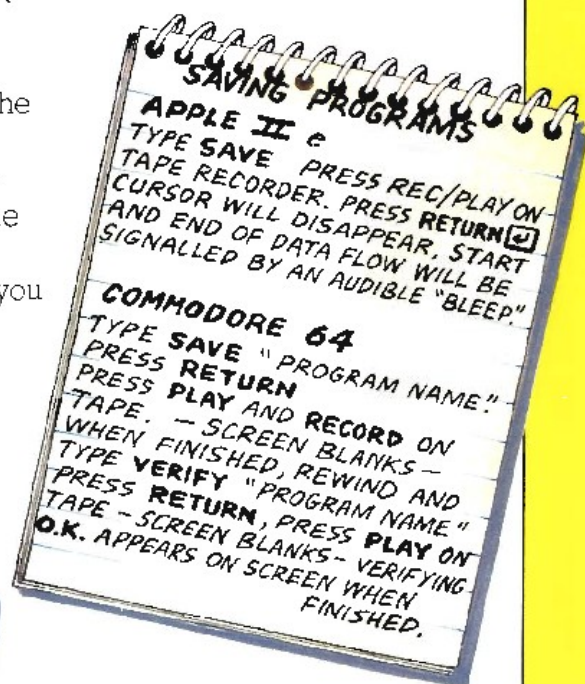 he
e
you
SAVING PROGRAMS
APPLE II e
TYPE SAVE PRESS REC/PLAY ON
TAPE RECORDER. PRESS RETURN ↵
CURSOR WILL DISAPPEAR, START
AND END OF DATA FLOW WILL BE
SIGNALLED BY AN AUDIBLE "BLEEP."
COMMODORE 64
TYPE SAVE "PROGRAM NAME".
PRESS RETURN
PRESS PLAY AND RECORD ON
TAPE. – SCREEN BLANKS –
WHEN FINISHED, REWIND AND
TYPE VERIFY "PROGRAM NAME"
PRESS RETURN, PRESS PLAY ON
TAPE – SCREEN BLANKS – VERIFYING
O.K. APPEARS ON SCREEN WHEN
FINISHED.